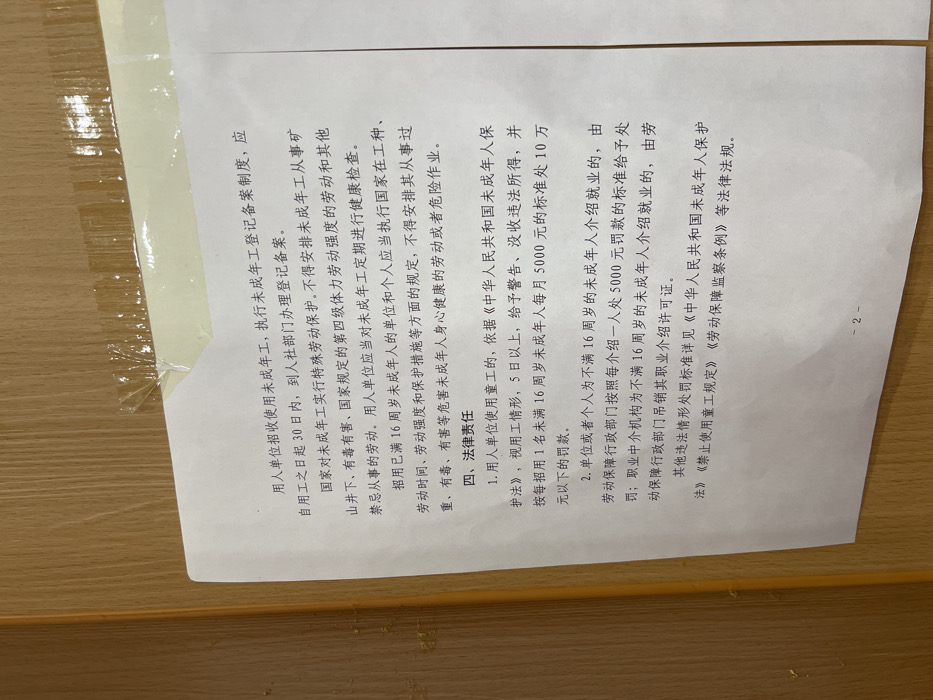 用人单位招收使用未成年工，执行未成年工登记备案制度，应
自用工之日起 30 日内，到人社部门办理登记备案。
国家对未成年工实行特殊劳动保护。不得安排未成年工从事矿
山井下、有毒有害、国家规定的第四级体力劳动强度的劳动和其他
禁忌从事的劳动。用人单位应当对未成年工定期进行健康检查。
招用已满 16 周岁未成年人的单位和个人应当执行国家在工种、
劳动时间、劳动强度和保护措施等方面的规定，不得安排其从事过
重、有毒、有害等危害未成年人身心健康的劳动或者危险作业。
四、法律责任
1.用人单位使用童工的，依据《中华人民共和国未成年人保
护法》，视用工情形，5 日以上，给予警告、没收违法所得，并
按每招用 1 名未满 16 周岁未成年人每月 5000 元的标准处 10 万
元以下的罚款。
2.单位或者个人为不满 16 周岁的未成年人介绍就业的，由
劳动保障行政部门按照每介绍一人处 5000 元罚款的标准给予处
罚；职业中介机构为不满 16 周岁的未成年人介绍就业的，由劳
动保障行政部门吊销其职业介绍许可证。
其他违法情形处罚标准详见《中华人民共和国未成年人保护
法》《禁止使用童工规定》《劳动保障监察条例》等法律法规。
- 2 -